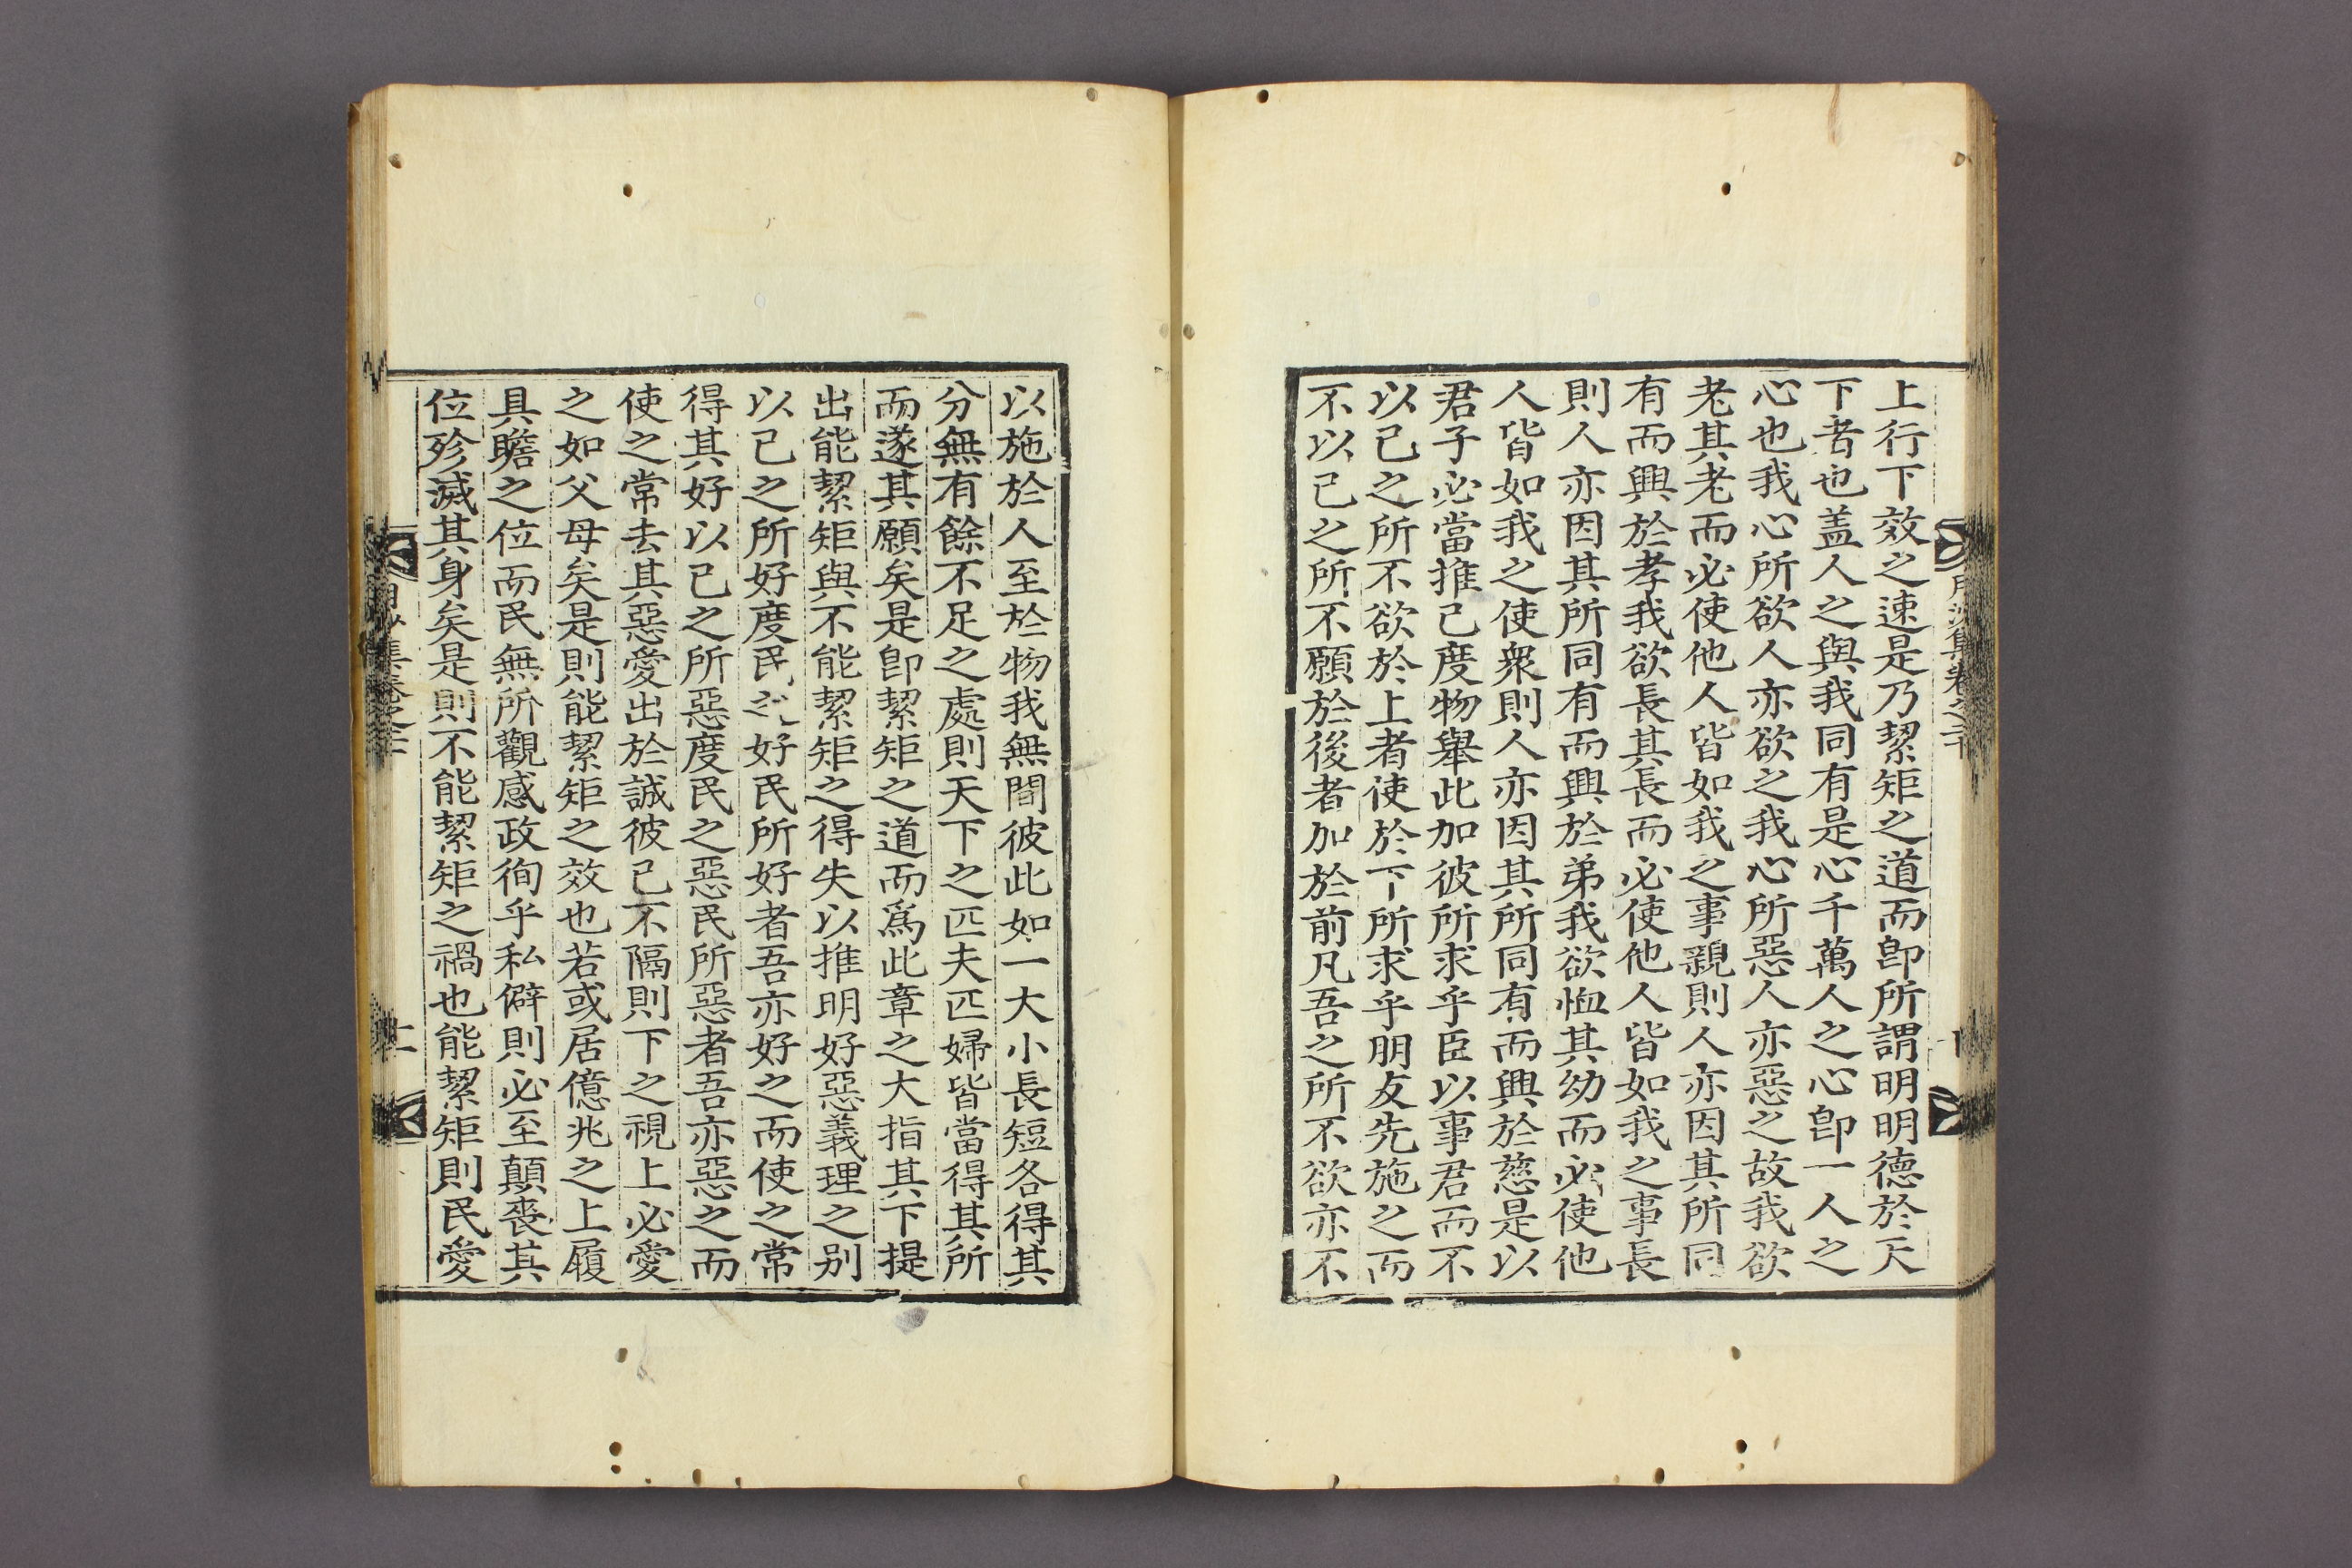 上行下效之速是乃絜矩之道而卽所謂明明德於天
下者也盖人之與我同有是心千萬人之心卽一人之
心也我心所欲人亦欲之我心所惡人亦惡之故我欲
老其老而必使他人皆如我之事親則人亦因其所同
有而興於孝我欲長其長而必使他人皆如我之事長
則人亦因其所同有而興於弟我欲恤其幼而必使他
人皆如我之使衆則人亦因其所同有而興於慈是以
君子必當推己度物舉此加彼所求乎臣以事君而不
以己之所不欲於上者使於下所求乎朋友先施之而
不以己之所不願於後者加於前凡吾之所不欲亦不
以施於人至於物我無間彼此如一大小長短各得其
分無有餘不足之處則天下之匹夫匹婦皆當得其所
而遂其願矣是卽絜矩之道而爲此章之大指其下提
出能絜矩與不能絜矩之得失以推明好惡義理之别
以己之所好度民之好民所好者吾亦好之而使之常
得其好以己之所惡度民之惡民所惡者吾亦惡之而
使之常去其惡愛出於誠彼己不隔則下之視上必愛
之如父母矣是則能絜矩之效也若或居億兆之上履
具瞻之位而民無所觀感政徇乎私僻則必至顚喪其
位殄滅其身矣是則不能絜矩之禍也能絜矩則民愛
集卷之